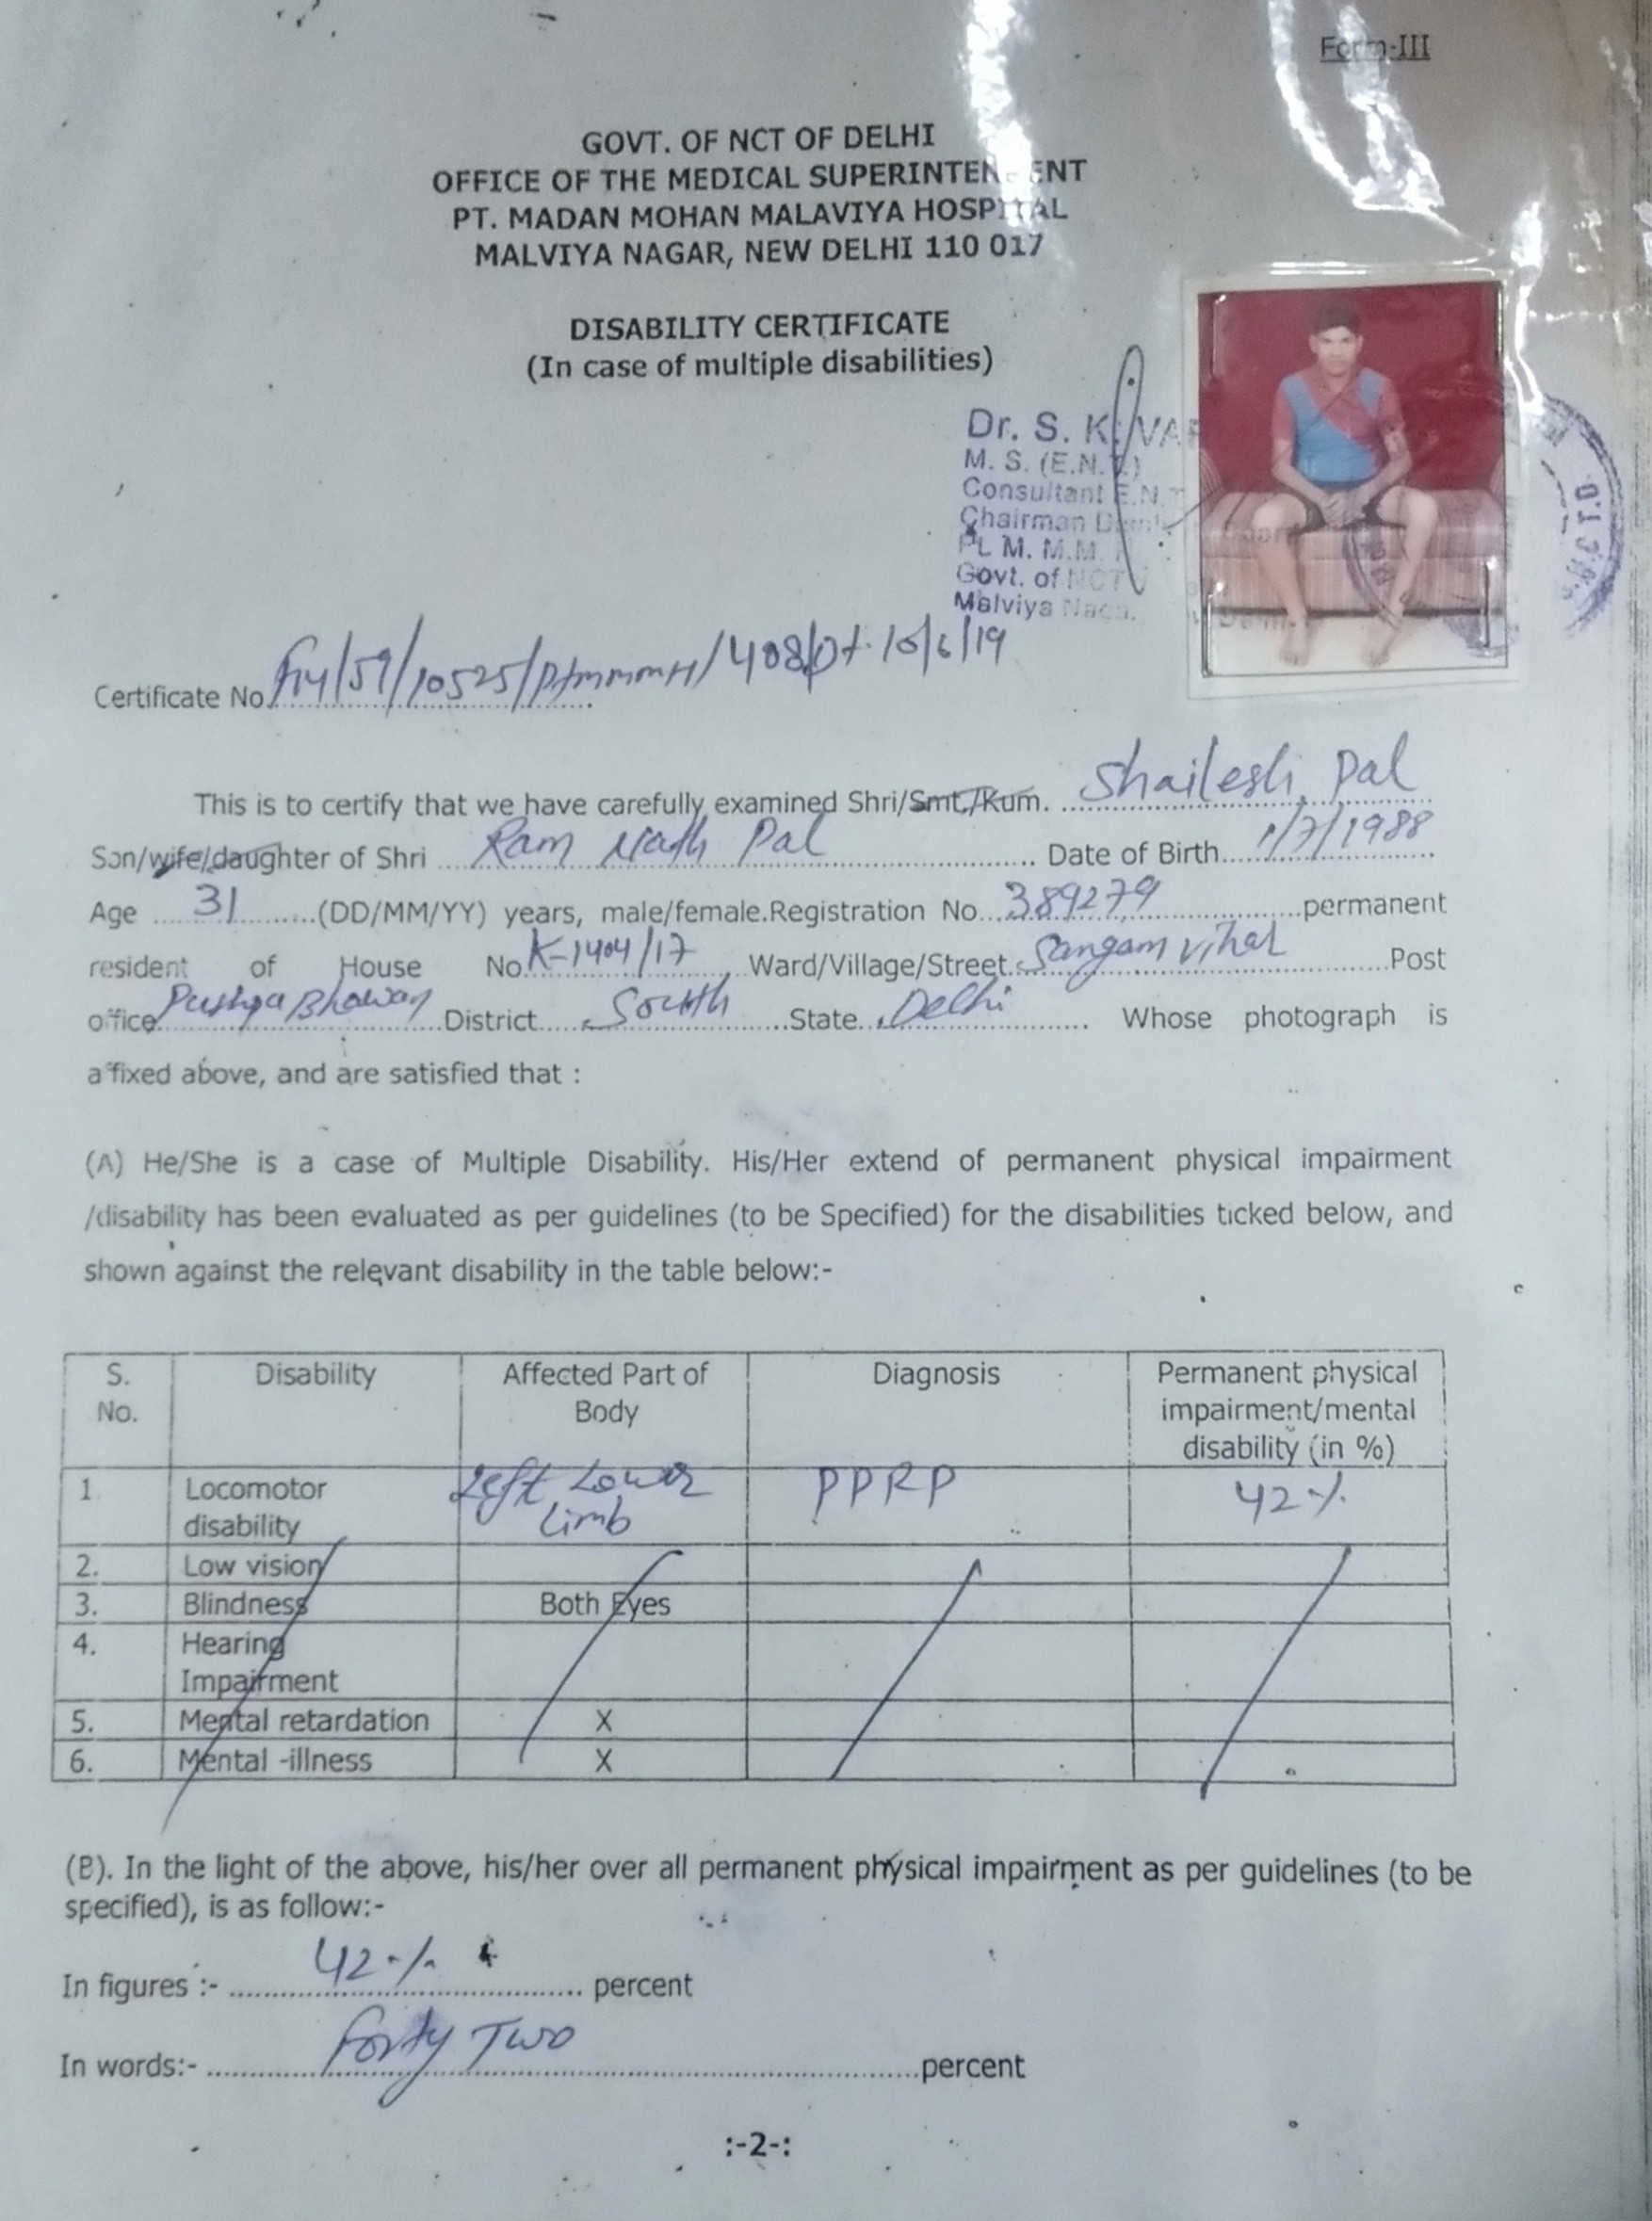 Form-III
GOVT. OF NCT OF DELHI
OFFICE OF THE MEDICAL SUPERINTENDENT
PT. MADAN MOHAN MALAVIYA HOSPITAL
MALVIYA NAGAR, NEW DELHI 110 017
DISABILITY CERTIFICATE
(In case of multiple disabilities)
Dr. S. K.
M. S. (E.N.T.)
Consultant E.N.T
Chairman
M. M.M.
Govt. of NCT
Malviya
Certificate No. /59/10525/PtmmmH/408/Dt. 10/6/19
This is to certify that we have carefully examined Shri/Smt./Kum. Shailesh Pal
Son/wife/daughter of Shri Ram Nath Pal Date of Birth 1/7/1988
Age 31 (DD/MM/YY) years, male/female.Registration No 389279 permanent
resident of House No. K-1404/17 Ward/Village/Street Sangam Vihar Post
office Pushpa Bhawan District South State Delhi Whose photograph is
affixed above, and are satisfied that :
(A) He/She is a case of Multiple Disability. His/Her extend of permanent physical impairment
/disability has been evaluated as per guidelines (to be Specified) for the disabilities ticked below, and
shown against the relevant disability in the table below:-
S. No. Disability Affected Part of Body Diagnosis Permanent physical impairment/mental disability (in %)
1. Locomotor disability Left Lower Limb PPRP 42%
2. Low vision
3. Blindness Both Eyes
4. Hearing Impairment
5. Mental retardation X
6. Mental -illness X
(B). In the light of the above, his/her over all permanent physical impairment as per guidelines (to be
specified), is as follow:-
In figures :- 42% percent
In words:- Forty Two percent
:-2-: